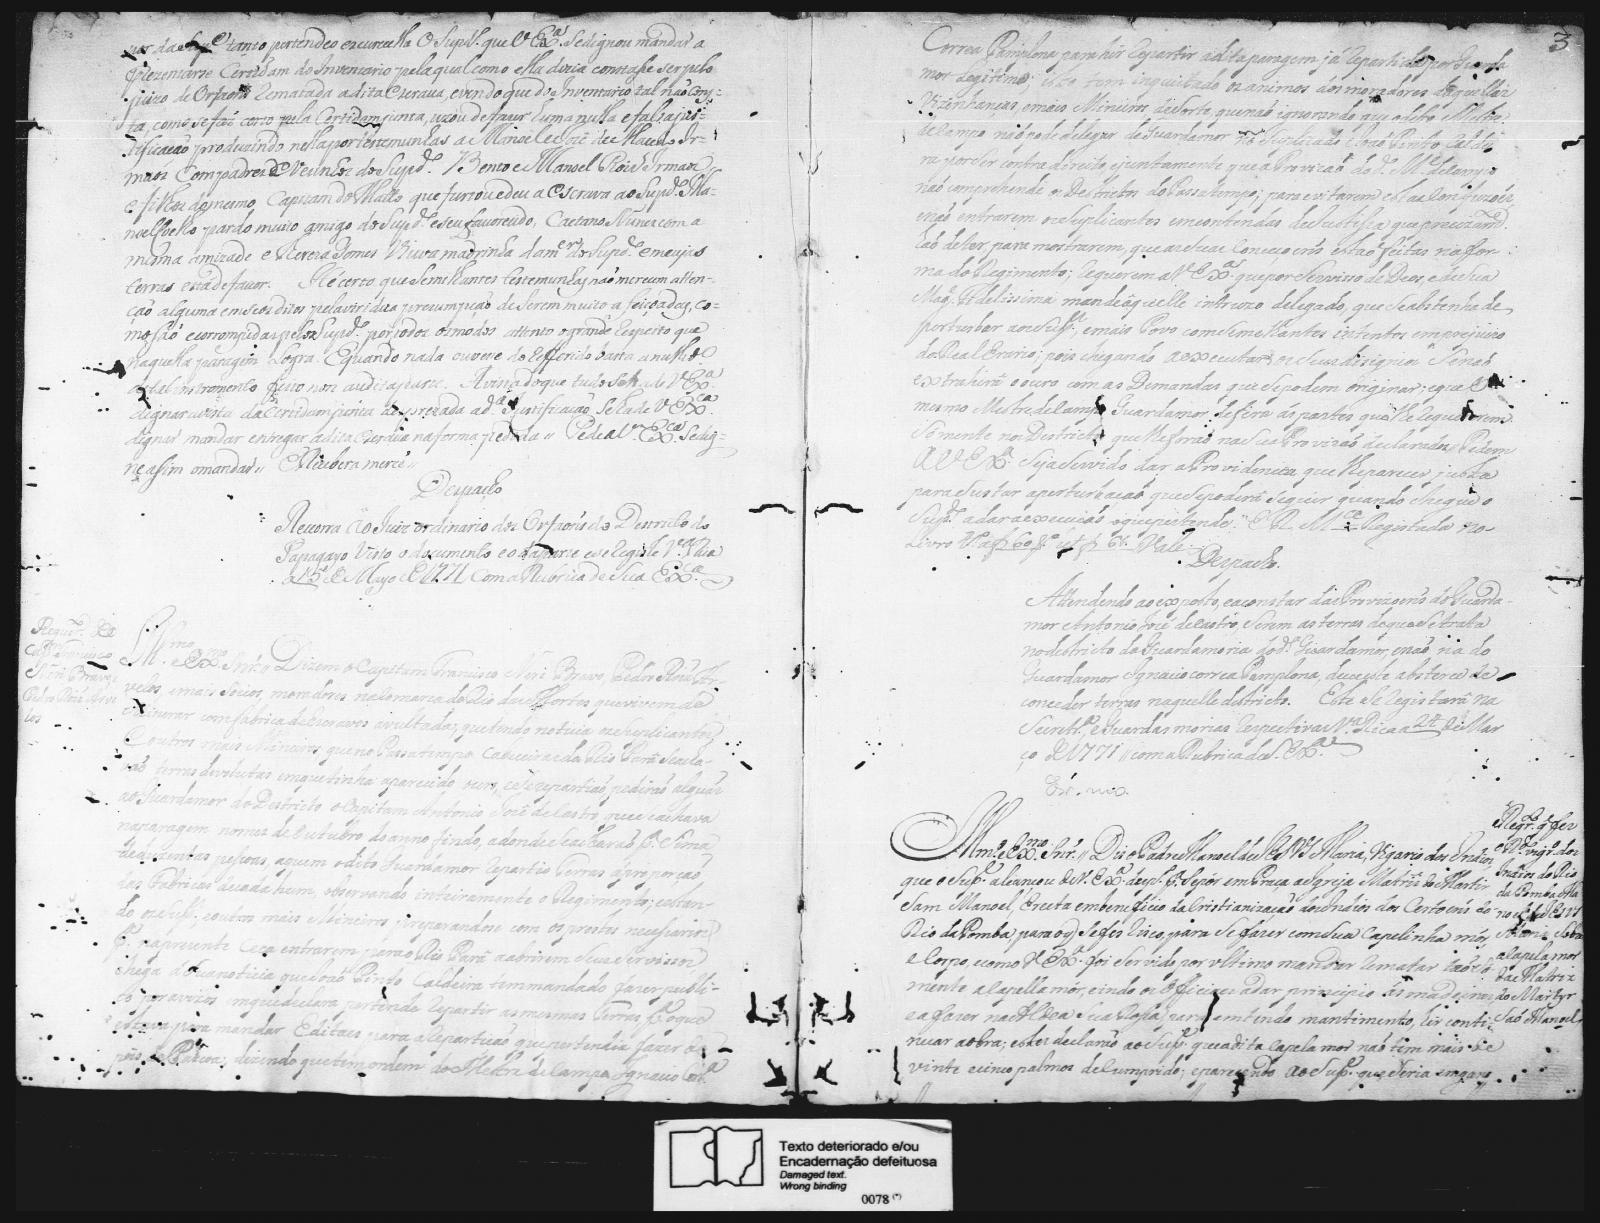 por da Sup.e tanto pertendeo escurecella O Sup.e que V Ex.a Se dignou mandar a
prezentarse Certidam do Inventario pela qual como ella dizia constasse ser pelo
juizo de Orfaons Rematada a dita Escrava, e vendo que do Inventario tal não cons-
ta, como se faz certo pela Certidam junta, uzou de fazer huma nulla e falsa jus-
tificação produzindo nella por testemunhas a Manoel Joze de Macedo Ir-
maos Compadres e Vezinhos do Sup.do Bento e Manoel Roiz Irmaos
e filhos do mesmo Capitam do Matto que furtou e deu a Escrava ao Sup.do Ma-
noel Coelho pardo muito amigo do Sup.do e seu favorecido, Caetano Nunes com a
mesma amizade e Thereza Gomes Viuva madrinha da m.er do Sup.do e em cujas
terras está de favor. He certo que Semilhantes testemunhas não merecem atten-
ção alguma em seos ditos pela virtidica presumpção de Serem muito afeiçoadas, co-
mo são e corrompidas pelo Sup.do por todos os modos attento o grande respeito que
naquella paragem Logra. E quando nada ouvese do refferido basta a nullid.e
do tal instromento feito sem audita parte. A vista do que tudo
dignar a vista da Certidam junta desprezada a d.a Justificação Se hade V Ex.ca
dignar mandar entregar a dita Escrava na forma pedida // Pede a V Ex.ca Se dig-
ne asim o mandar // E Recebera merce //
Despacho
Recorra ao Juiz ordinario dos Orfaõs do Destricto do
Papagayo Visto o documento e o
a 15 de Mayo de 1771 Com a Rubrica de Sua Ex.a
Requer.to do
Cap.m Francisco
Neri Bravo,
Pedro Roiz Arve
los
Ill.mo e Ex.mo Snr.// Dizem o Capitam Francisco Neri Bravo, Pedro Roiz Ar-
velos e mais Socios, moradores na Comarca do Rio das Mortes que vivem de
minerar com fabrica de Escravos avultada; que tendo noticia os Suplicantes
e outros mais Mineiros que no Pasatempo Cabeceiras do Rio Pará Se acha-
vão terras devolutas em que tinha aparecido ouro, e Se repartião pedirão alguãs
ao Guardamor do Destricto o Capitam Antonio Joze de Castro que se achava
na paragem no mez de Outubro do anno findo, a donde Se acharão p.a Sima
de duzentas pessoas, a quem o dito Guardamor repartio terras a proporção
das Fabricas de cada hum, observando inteiramente o Regimento; e estan-
do os Sup.es e outros mais Mineiros preparandose com os prestos necessarios
p.a na prezente Ceca entrarem para o Rio Pará a abrirem Seus Servissos
chega a Sua noticia que João Pinto Caldeira tem mandado fazer publi-
co por avizos em que declara pertende repartir as mesmas terras p.a o que
estava para mandar Editaes para a repartição que pertendia fazer de
pois da Pascoa; dizendo que tem ordem do Mestre de Campo Ignacio Corr.a
3
Correa Pamplona para hir repartir a dita paragem já repartida por Guarda
mor Legitimo; isto tem inquietado os animos dos moradores daquellas
Vizinhanças, e mais Mineiros, de sorte que não ignorando que o dito Mestre
de Campo não pode delegar de Guardamor no Suplicado João Pinto Caldei
ra por ser contra direito, e juntamente que a Provizão do d.o M.e de Campo
não comprehende o Destricto do Pasa tempo; para evitarem estas Confuzoés,
e não entrarem os Suplicantes em contendas de Justiça que precizam.te
hão de ter, para mostrarem, que as Suas Concessoens estão feitas na for-
ma do Regimento; Requerem a V Ex.a que por Servisso de Deos, e de Sua
Mag.e Fidelissima mande áquelle intruzo delegado, que Se abstenha de
porturbar aos Sup.es, e mais Povo com Semelhantes intentos em prejuizo
do Real Erario; pois chegando a executar os Seus disignios Senão
extrahirá o ouro com as Demandas que Se podem originar; e que o
mesmo Mestre de Campo Guardamor, defira ás partes que lhe requererem
Sómente nos Destrictos que lhe forão na Sua Provizão declarados. Pedem
a V Ex.a Seja Servido dar a Providencia, que lhe parecer justa
para Sustar a perturbação que Se poderá Seguir quando chegue o
Sup.do a dar a execução o que pertende. E R. M.ce Registada no
Livro 1.o a f 60 v.o ut f 61. Vale
Despacho.
Attendendo ao exposto, e a constar das Provizoens do Guarda-
mor Antonio Joze de Castro, Serem as terras de que Se trata
no destricto da Guardamoria do d.o Guardamor, e não na do
Guardamor Ignacio correa Pamplona, deve este absterse de
conceder terras naquelle districto. Este Se Registará na
Secretr.a e Guardasmorias respectivas V.a Rica a 24 de Mar
ço de 1771 // com a Rubrica de S. Ex.a
Ill.mo e Ex.mo Snr.// Diz o Padre Manoel de Jesus Maria, Vigario dos Indios,
que o Sup.e alcançou de V. Ex.a desp.o p.a Se pôr em Praça a Igreja Matris do Martir
Sam Manoel, Erecta em beneficio da Cristianização dos Indios dos Certoens do
Rio da Pomba, para o q Se fes risco, para Se fazer com Sua Capelinha mór,
e Corpo, e como V Ex.a foi Servido por ultimo mandar rematar tão Só
mente a Capella mór, e indo os Officiaes a dar principio ás madeiras,
e a fazer na Aldea Sua Rosa, para em tendo mantimento, hir conti-
nuar a obra; estes declarão ao Sup.e que a dita Capela mor não tem mais de
vinte e cinco palmos de Cumprido; e parecendo ao Sup.e que Seria engano
Reqr.to q fez
o P.e vigr.o dos
Indios do Rio
da Pomba Ma
noel de Jesus
Maria Sobre
a Capela mor
da Matriz
do Martyr
São Manoel
Texto deteriorado e/ou
Encadernação defeituosa
Damaged text.
Wrong binding
0078 (*)